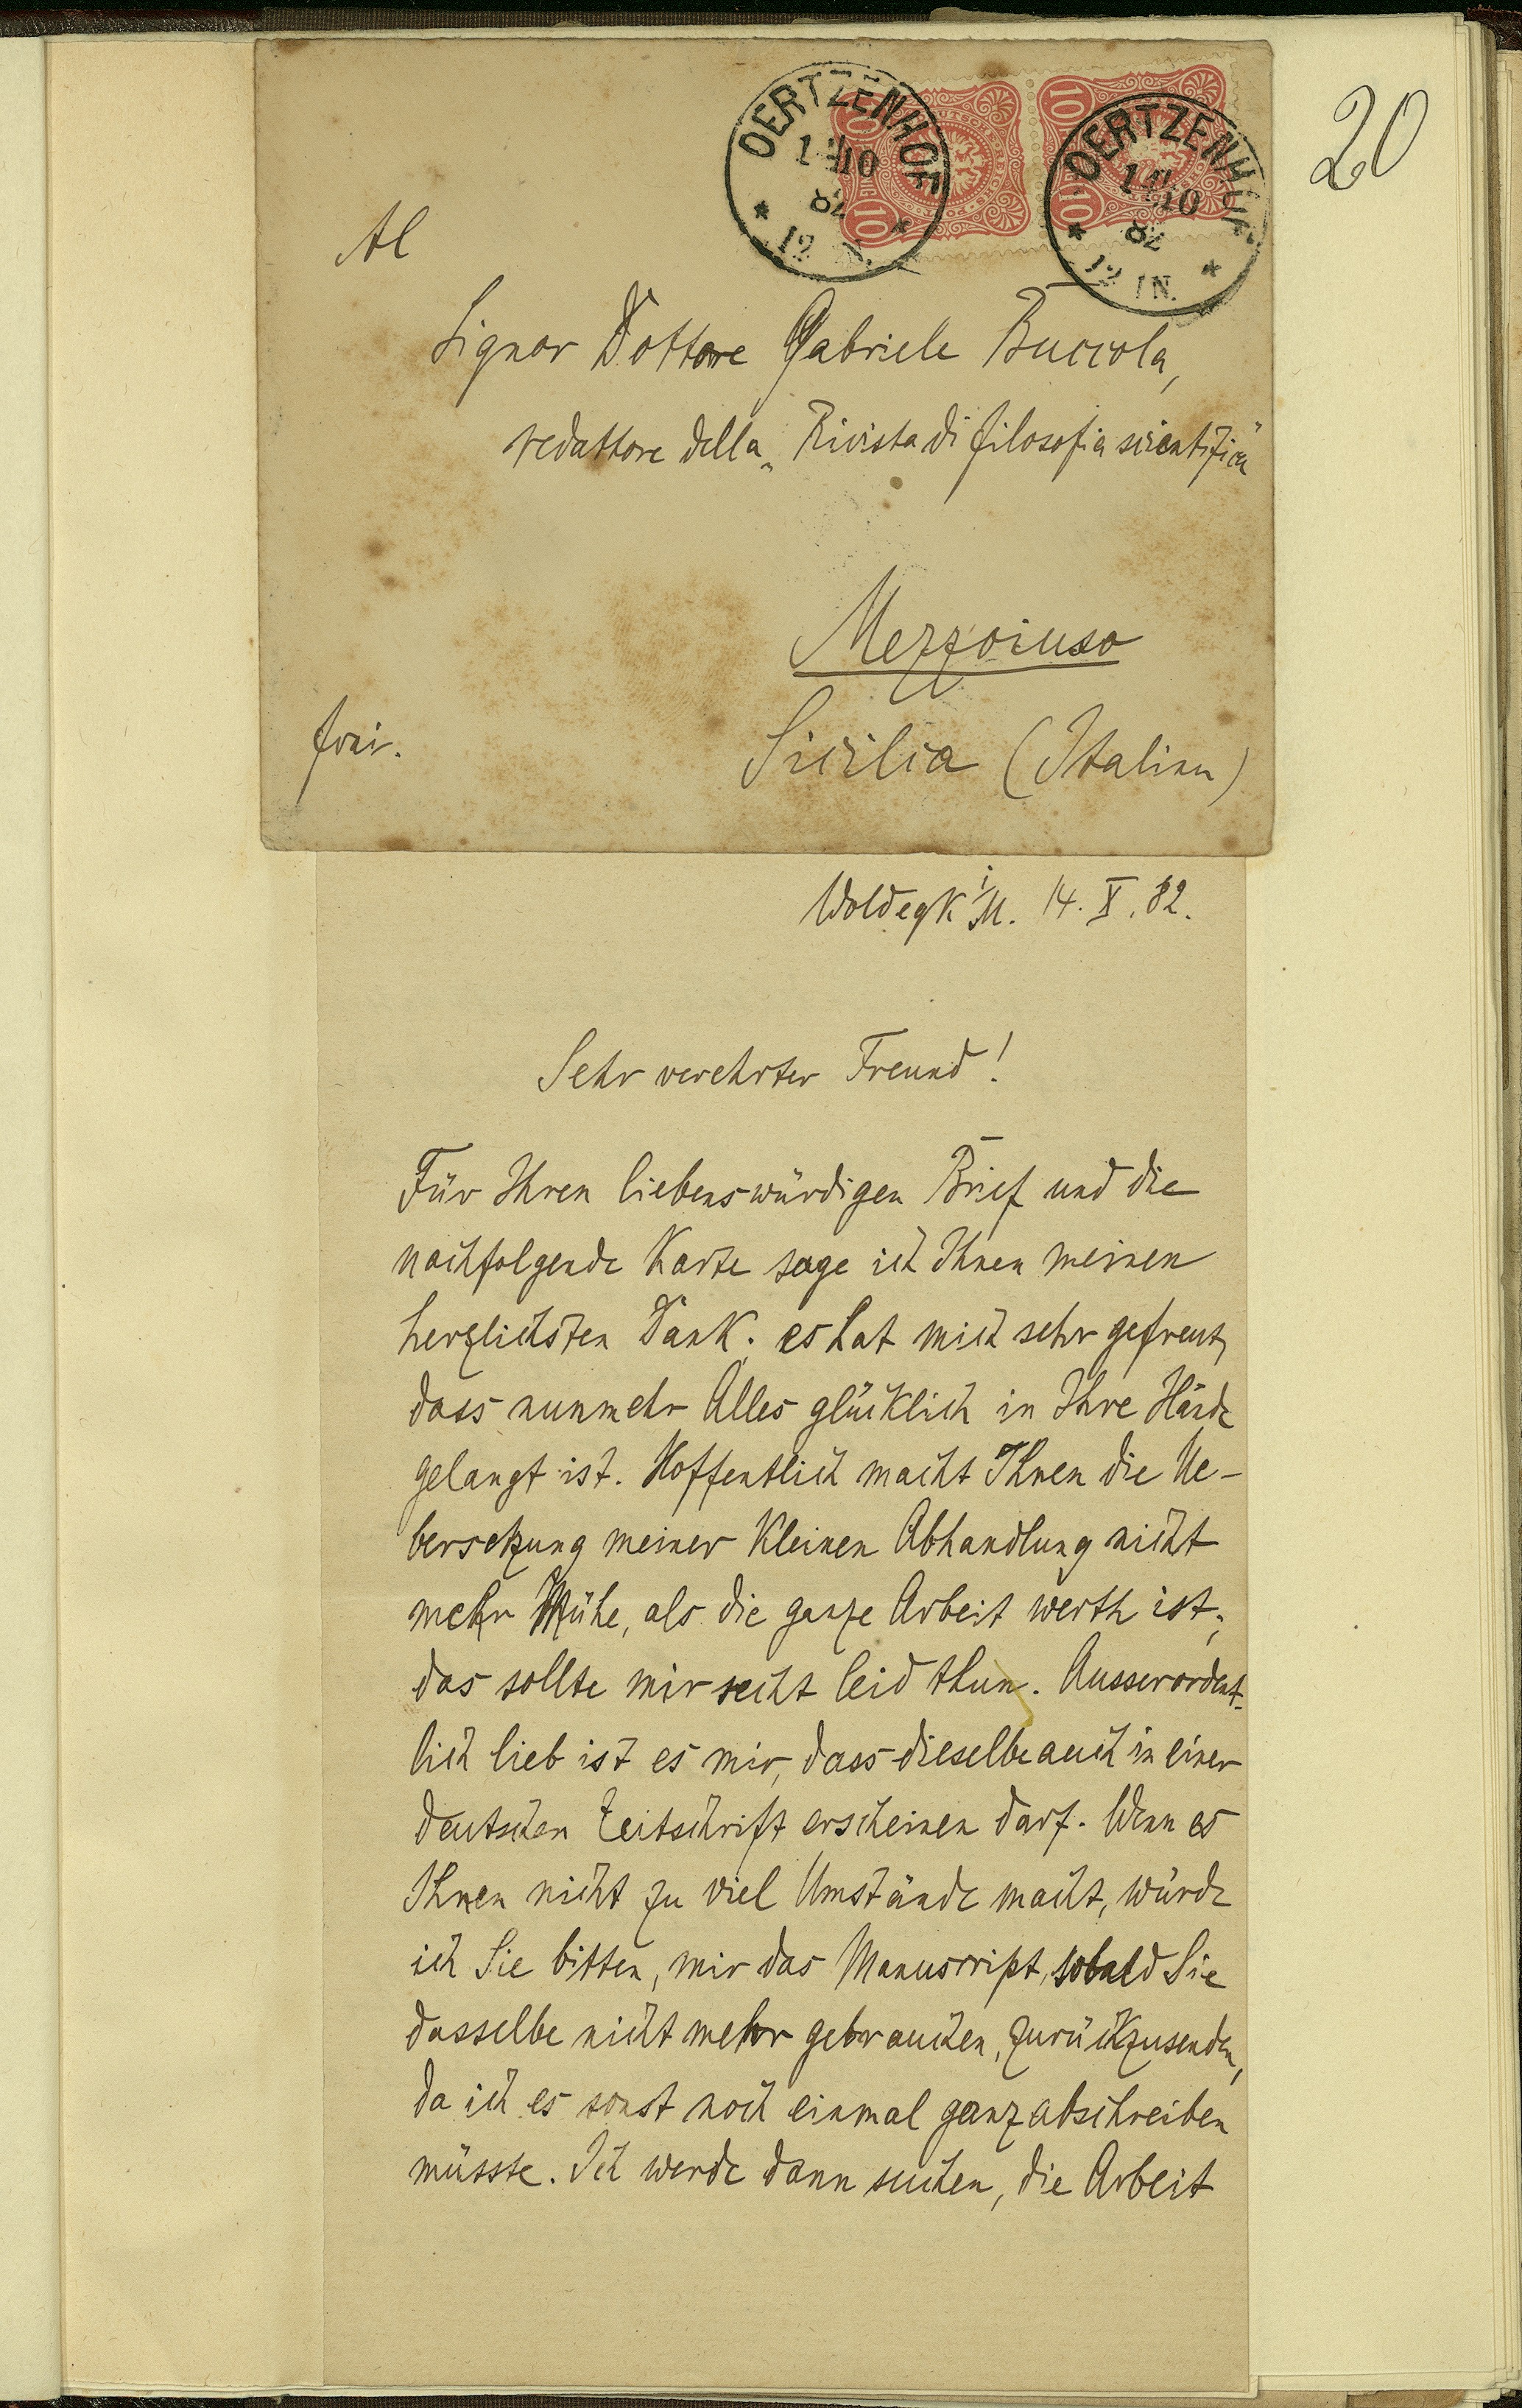 20
OERTZENHOF
14/10
82
12 1N.
OERTZENHOF
14/10
82
12 1N.
10
10
10
10
Al
Signor Dottore Gabriele Buccola,
redattore della „Rivista di filosofia scientifica“
Mezzoiuso
frei.
Sicilia (Italien)
Woldegk i/M. 14. X. 82.
Sehr verehrter Freund!
Für Ihren liebenswürdigen Brief und die
nachfolgende Karte sage ich Ihnen meinen
herzlichsten Dank; es hat mich sehr gefreut,
dass nunmehr Alles glücklich in Ihre Hände
gelangt ist. Hoffentlich macht Ihnen die Ue-
bersetzung meiner kleinen Abhandlung nicht
mehr Mühe, als die ganze Arbeit werth ist;
das sollte mir recht leid thun. Ausserordent-
lich lieb ist es mir, dass dieselbe auch in einer
deutschen Zeitschrift erscheinen darf. Wenn es
Ihnen nicht zu viel Umstände macht, würde
ich Sie bitten, mir das Manuscript, sobald Sie
dasselbe nicht mehr gebrauchen, zurückzusenden,
da ich es sonst noch einmal ganz abschreiben
müsste. Ich werde dann suchen, die Arbeit